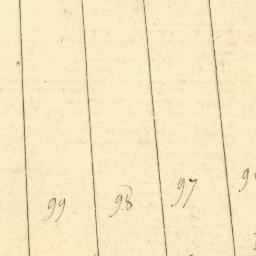 99 98 97